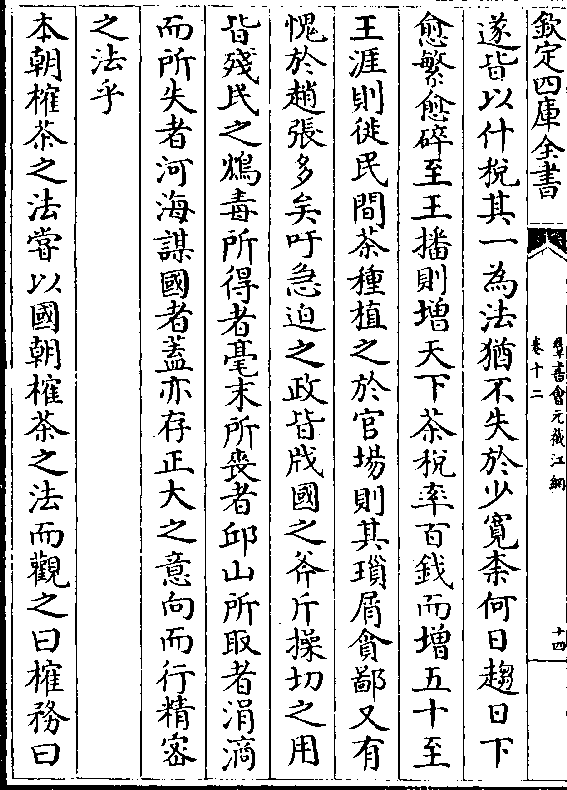 欽定四庫全書
羣書會元截江網
卷十二
十四
遂皆以什稅其一為法猶不失於少寬柰何日趨日下
愈繁愈碎至王播則增天下茶稅率百錢而增五十至
王涯則徙民間茶種植之於官場則其瑣屑貪鄙又有
愧於趙張多矣吁急迫之政皆戕國之斧斤操切之用
皆殘民之鴆毒所得者毫末所喪者邱山所取者涓滴
而所失者河海謀國者蓋亦存正大之意向而行精密
之法乎
本朝榷茶之法嘗以國朝榷茶之法而觀之曰榷務曰